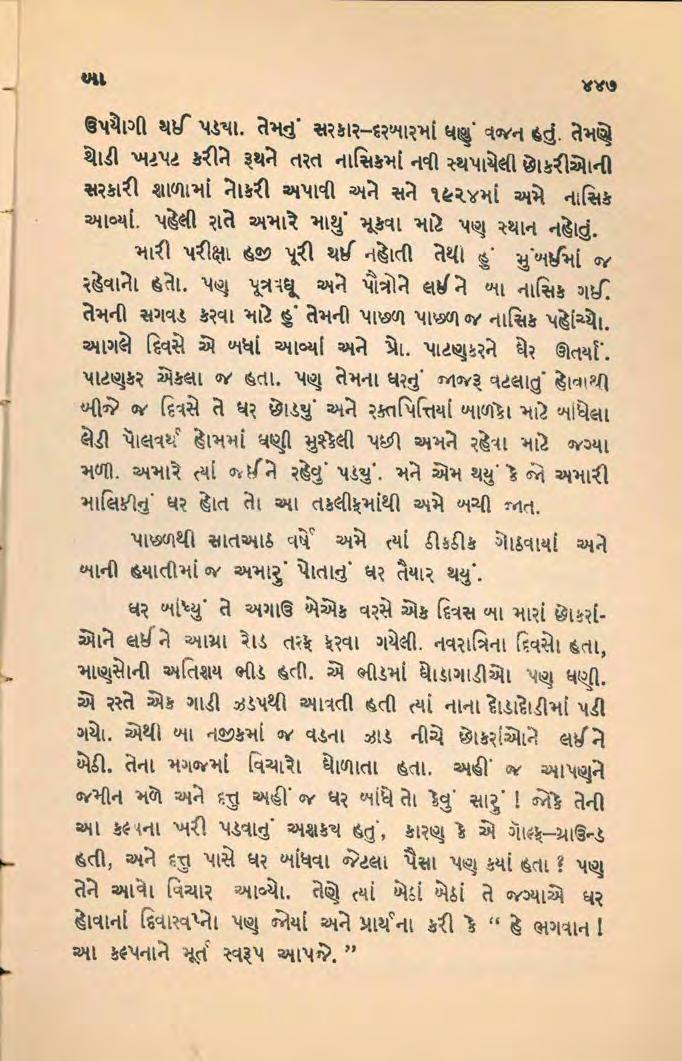 બા
૪૪૭
ઉપયોગી થઈ પડયા. તેમનું સરકાર–દરબારમાં ઘણું વજન હતું. તેમણે
થોડી ખટપટ કરીને રૂથને તરત નાસિકમાં નવી સ્થપાયેલી છોકરીઓની
સરકારી શાળામાં નોકરી અપાવી અને સને ૧૯૨૪માં અમે નાસિક
આવ્યાં. પહેલી રાતે અમારે માથું મૂકવા માટે પણ સ્થાન નહોતું.
મારી પરીક્ષા હજી પૂરી થઈ નહોતી તેથી હું મુંબઈમાં જ
રહેવાનો હતો. પણ પુત્રવધૂ અને પૌત્રોને લઈને બા નાસિક ગઈ.
તેમની સગવડ કરવા માટે હું તેમની પાછળ પાછળ જ નાસિક પહોંચ્યો.
આગલે દિવસે એ બધાં આવ્યાં અને પ્રો. પાટણકરને ઘેર ઊતર્યાં.
પાટણકર એકલા જ હતા. પણ તેમના ઘરનું જાજરૂ વટલાતું હોવાથી
બીજે જ દિવસે તે ઘર છોડયું અને રક્તપિત્તિયાં બાળકો માટે બાંધેલા
લેડી પોલવર્થ હોમમાં ઘણી મુશ્કેલી પછી અમને રહેવા માટે જગ્યા
મળી. અમારે ત્યાં જઈને રહેવું પડયું. મને એમ થયું કે જો અમારી
માલિકીનું ઘર હોત તો આ તકલીફમાંથી અમે બચી જાત.
પાછળથી સાતઆઠ વર્ષે અમે ત્યાં ઠીકઠીક ગોઠવાયાં અને
બાની હયાતીમાં જ અમારું પોતાનું ઘર તૈયાર થયું.
ઘર બાંધ્યું તે અગાઉ બેએક વરસે એક દિવસ બા મારાં છોકરાં-
ઓને લઈને આગ્રા રોડ તરફ ફરવા ગયેલી. નવરાત્રિના દિવસો હતા,
માણસોની અતિશય ભીડ હતી. એ ભીડમાં ઘોડાગાડીઓ પણ ઘણી.
એ રસ્તે એક ગાડી ઝડપથી આવતી હતી ત્યાં નાના દોડાદોડીમાં પડી
ગયો. એથી બા નજીકમાં જ વડના ઝાડ નીચે છોકરાંઓને લઈને
બેઠી. તેના મગજમાં વિચારો ઘોળાતા હતા. અહીં જ આપણને
જમીન મળે અને દત્તુ અહીં જ ઘર બાંધે તો કેવું સારું ! જોકે તેની
આ કલ્પના ખરી પડવાનું અશકય હતું, કારણ કે એ ગૉલ્ફ–ગ્રાઉન્ડ
હતી, અને દત્તુ પાસે ઘર બાંધવા જેટલા પૈસા પણ કયાં હતા ? પણ
તેને આવો વિચાર આવ્યો. તેણે ત્યાં બેઠાં બેઠાં તે જગ્યાએ ઘર
હોવાનાં દિવાસ્વપ્નો પણ જોયાં અને પ્રાર્થના કરી કે “ હે ભગવાન !
આ કલ્પનાને મૂર્ત સ્વરૂપ આપજે. ”